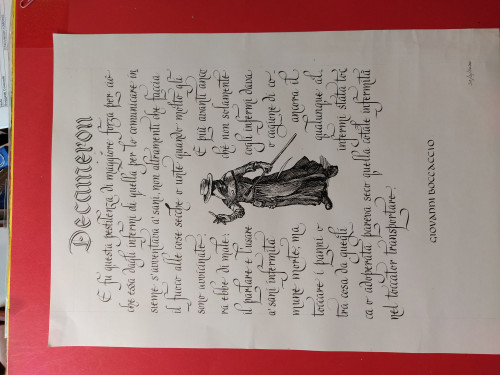 Decameron
E fu questa pestilenza di maggiore forza per ciò
che essa dagli infermi di quella per lo comunicare in
sieme s'avventava a' sani, non altramenti che faccia
il fuoco alle cose secche o unte quando molto gli
sono avvicinate. E più avanti anco
ra ebbe di male: ché non solamente
il parlare e l'usare cogli infermi dava
a' sani infermità o cagione di co-
mune morte, ma ancora il
toccare i panni o qualunque al
tra cosa da quegli infermi stata toc
ca o adoperata pareva seco quella cotale infermità
nel toccator transportare.
GIOVANNI BOCCACCIO